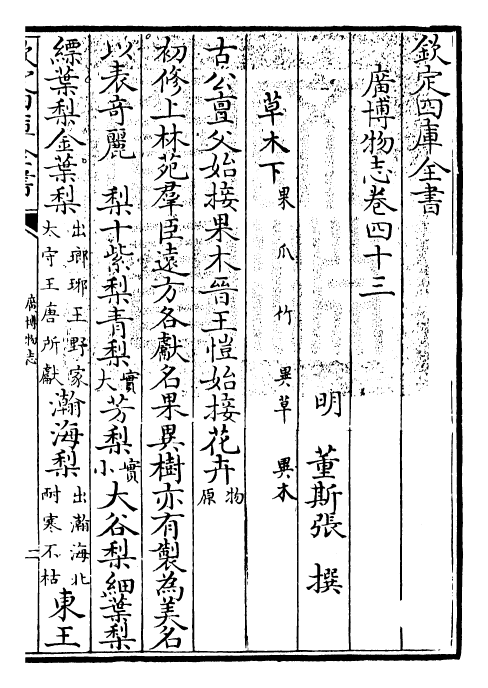 欽定四庫全書
廣博物志卷四十三
明 董斯張 撰
草木下 果 爪 竹 異草 異木
古公亶父始接果木晉王愷始接花卉物原
初修上林苑羣臣遠方各獻名果異樹亦有製為美名
以表奇麗 梨十紫梨青梨實大芳梨實小大谷梨細葉梨
縹葉梨金葉梨出瑯琊王野家太守王唐所獻瀚海梨出瀚海北耐寒不枯東王
廣博物志